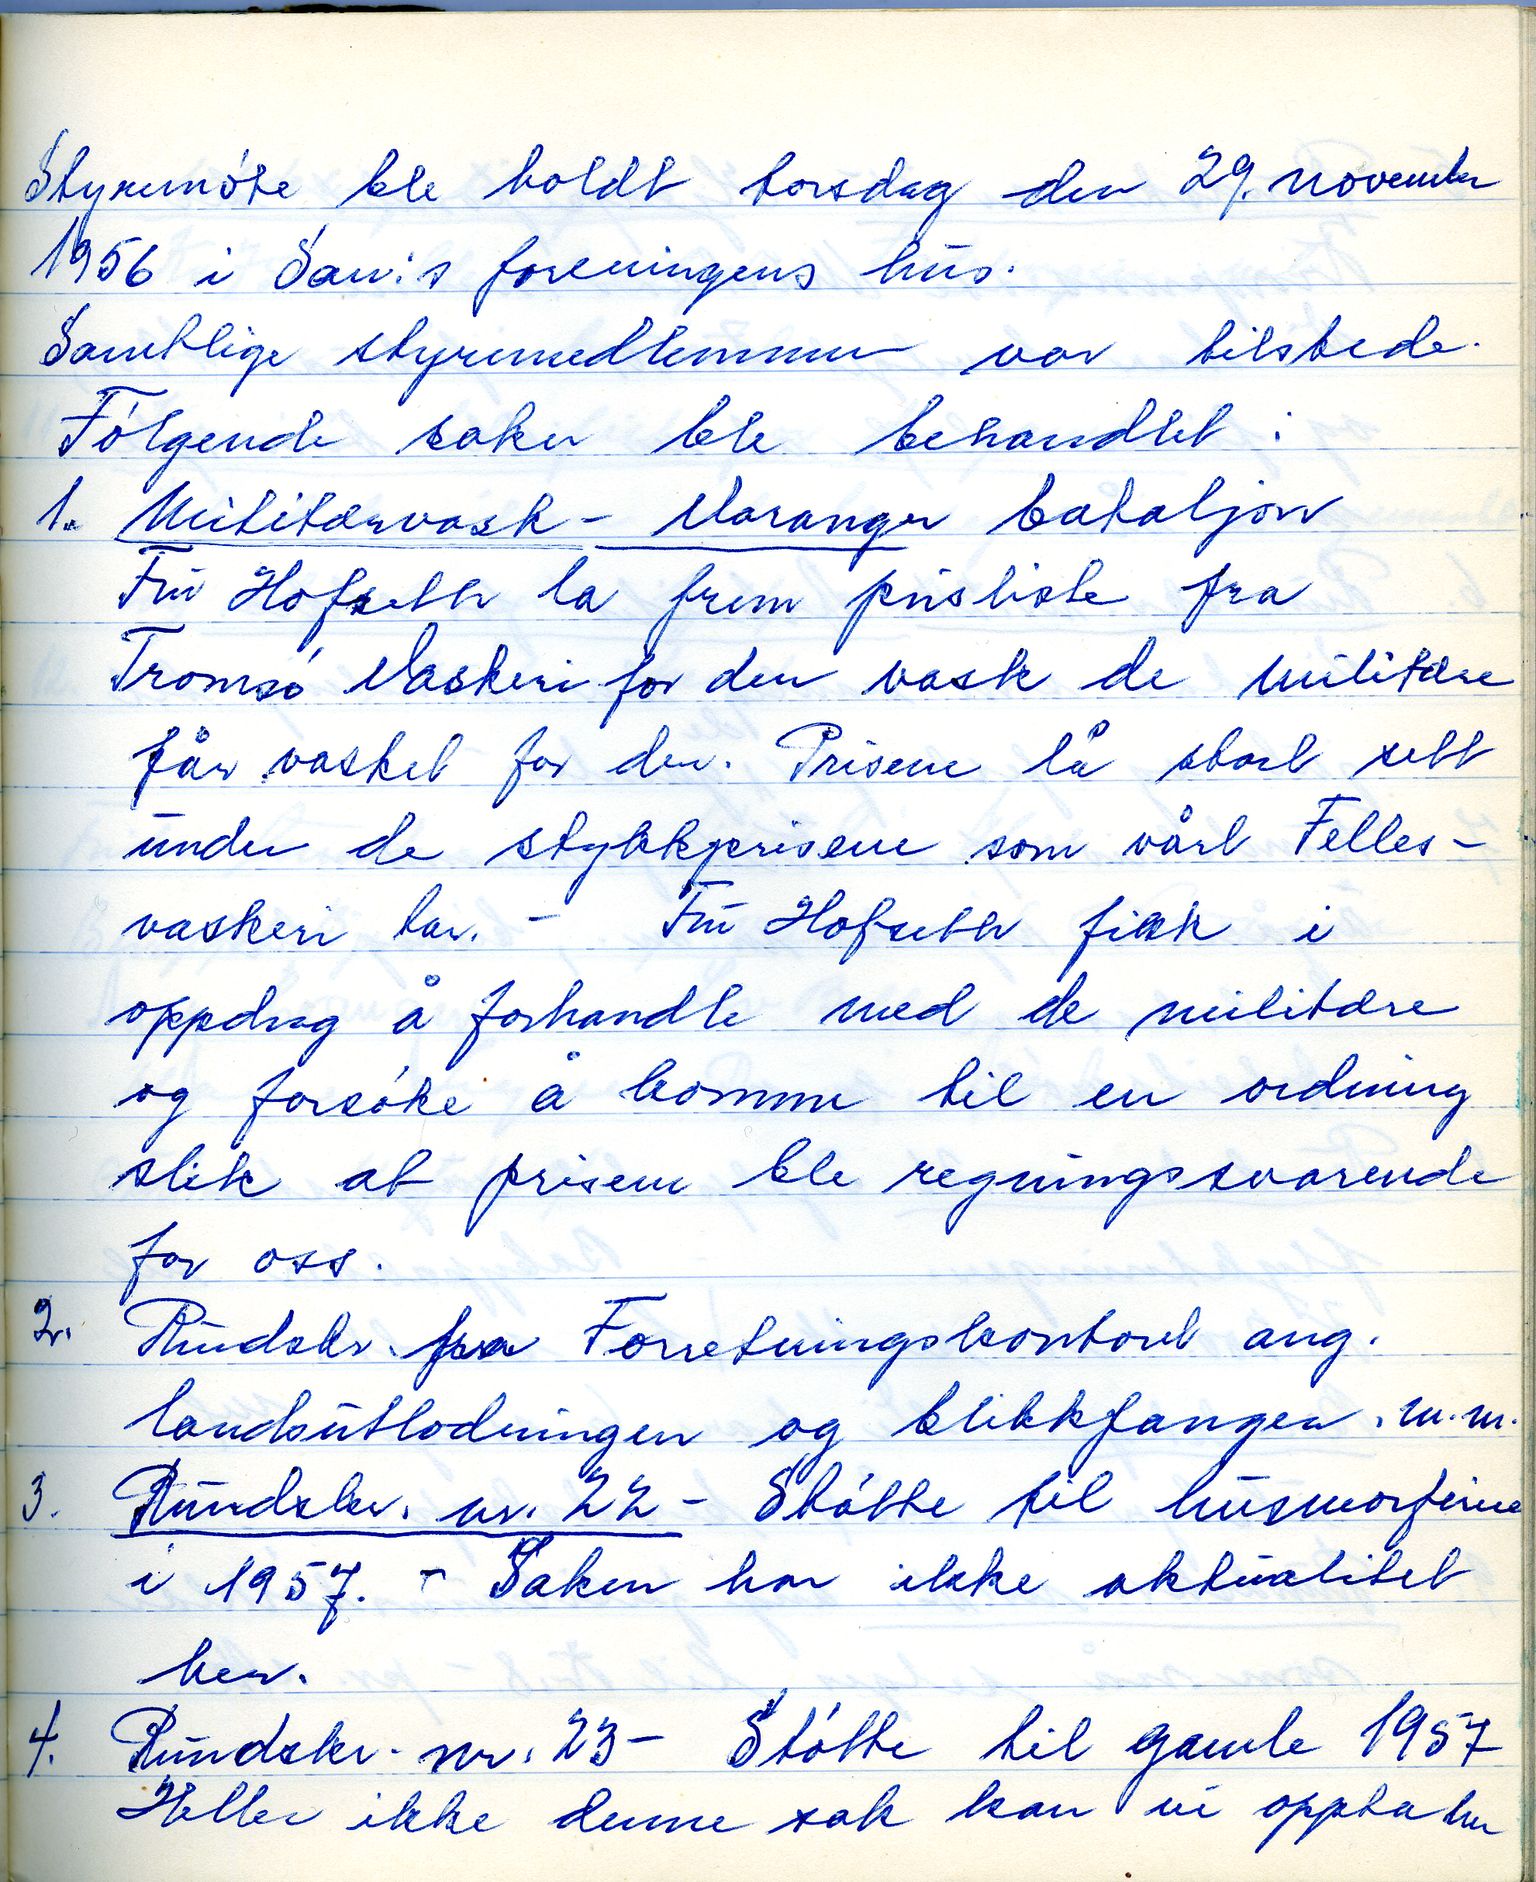 Styremøte ble holdt torsdag den 29. november
1956 i San:s foreningens hus.
Samtlige styremedlemmer var tilstede.
Følgende saker ble behandlet :
1. Militærvask - Varanger bataljon
Fru Hofseth la frem prisliste fra
Tromsø Vaskeri for den vask de militære
får vasket for der. Prisene lå stort sett
under de stykkprisene som vårt Felles-
vaskeri tar. - Fru Hofseth fikk i
oppdrag å forhandle med de militære
og forsøke å komme til en ordning
slik at prisene ble regningssvarende
for oss.
2. Rundskr. fra Forretningskontoret ang.
landsutlodningen og blikkfangen . m.m.
3. Rundskr. nr. 22 - Støtte til husmorferie
i 1957. - Saken har ikke aktualitet
her.
4. Rundskr. nr. 23 - Støtte til gamle 1957
Heller ikke denne sak kan vi oppta her